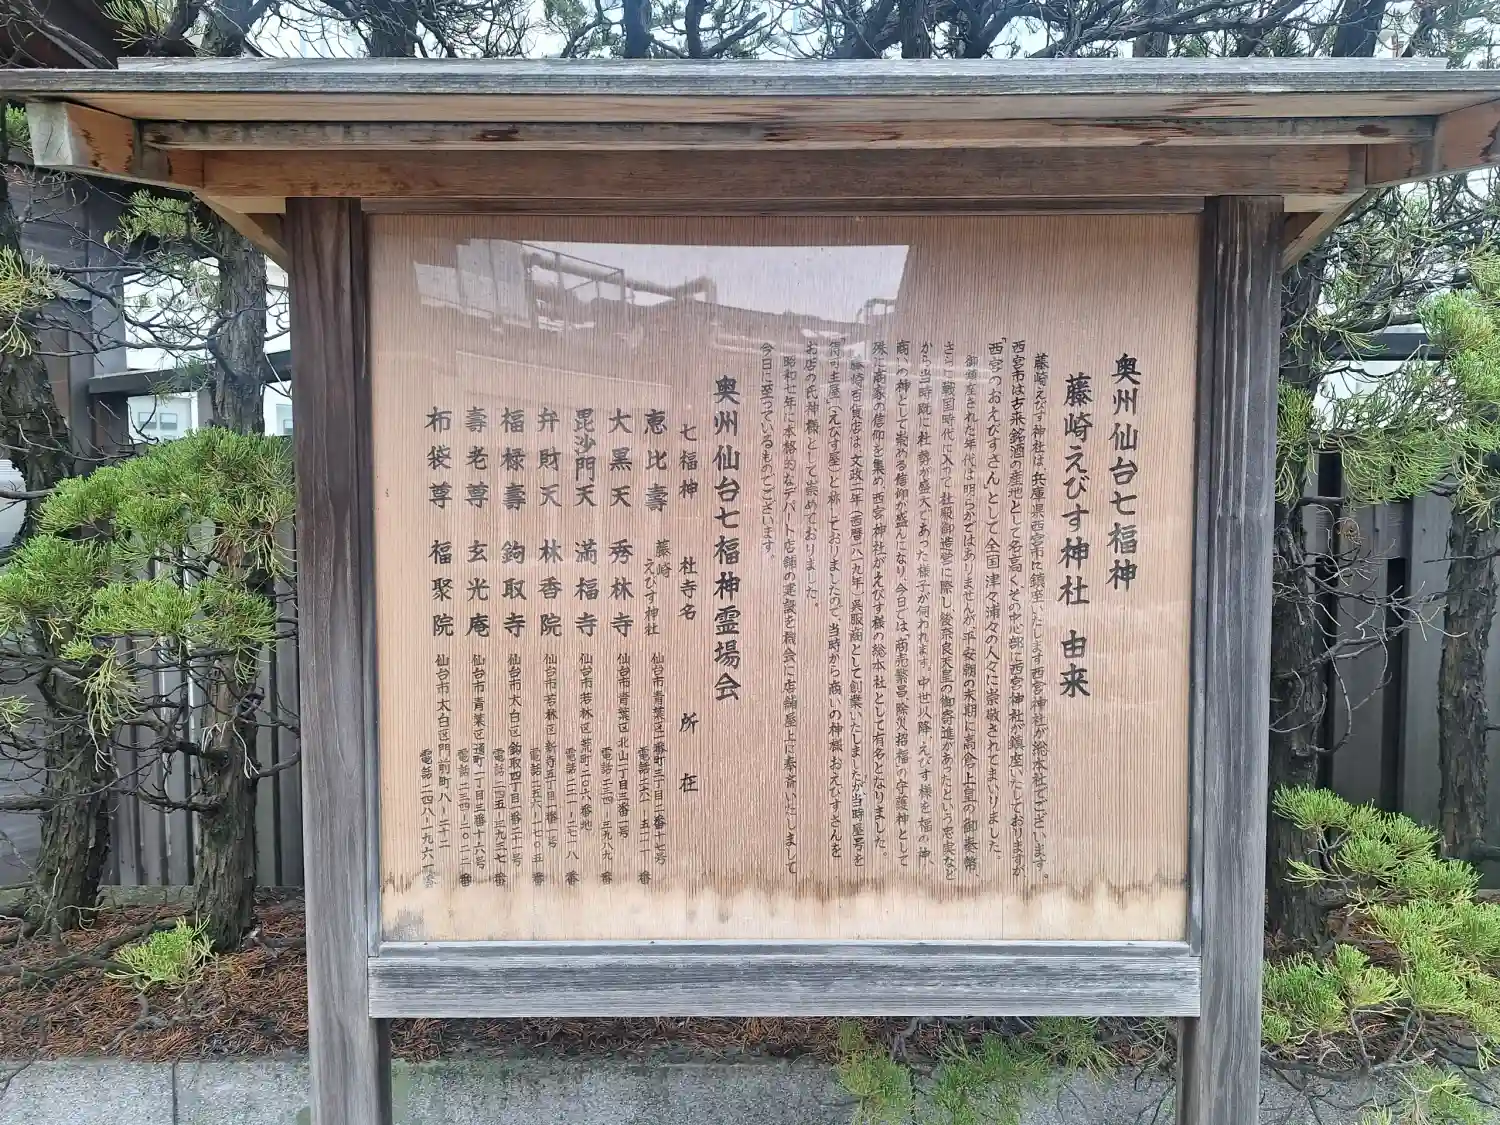 奥州仙台七福神
藤崎えびす神社 由来
藤崎えびす神社は、兵庫県西宮市に鎮座いたします西宮神社が総本社でございます。
西宮市は古来銘酒の産地として名高く、その中心部に西宮神社が鎮座いたしておりますが、
「西宮のおえびすさん」として全国津々浦々の人々に崇敬されてまいりました。
御鎮座された年代は明らかではありませんが、平安朝の末期に高倉上皇の御奉幣、
さらに戦国時代に入って社殿御造営に際し、後奈良天皇の御寄進があったという史実など
から、当時既に社勢が盛大であった様子が伺われます。中世以降、えびす様を福の神、
商いの神として崇める信仰が盛んになり、今日では、「商売繁昌・除災・招福」の守護神として
殊に商家の信仰を集め、西宮神社がえびす様の総本社として有名となりました。
藤崎百貨店は、文政二年(西暦一八一九年)呉服商として創業いたしましたが、当時屋号を
「得可主屋」(えびす屋)と称しておりましたので、当時から商いの神様、おえびすさんを
お店の氏神様として崇めておりました。
昭和七年に本格的なデパート店舗の建設を機会に店舗屋上に奉斎いたしまして
今日に至っているものでございます。
奥州仙台七福神霊場会
七福神 社寺名 所在
恵比壽 藤崎えびす神社 仙台市青葉区一番町三丁目二番十七号
電話二六一ー五一一一番
大黒天 秀林寺 仙台市青葉区北山一丁目三番一号
電話二三四ー三九八九番
毘沙門天 満福寺 仙台市若林区荒町二〇六番地
電話二二一ー二七一八番
弁財天 林香院 仙台市若林区新寺五丁目一番一号
電話二五六ー一七〇五番
福禄壽 鉤取寺 仙台市太白区鉤取四丁目二番二十一号
電話二四五ー三九三七番
壽老尊 玄光庵 仙台市青葉区通町一丁目三番十六号
電話二三四ー二〇二二番
布袋尊 福聚院 仙台市太白区門前町八ー二十二
電話二四八ー一九六一番